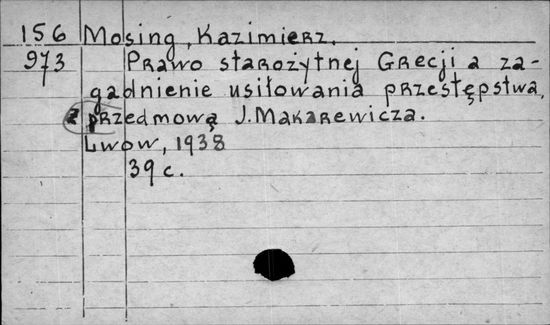 156 Mosing, Kazimierz.
973 Prawo starożytnej Grecji a za-
gadnienie usiłowania przestępstwa,
z przedmową J. Makarewicza.
Lwow, 1938
39 c.